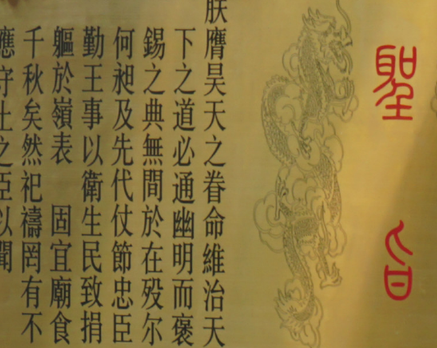 聖旨
朕膺昊天之眷命維治天
下之道必通幽明而褒
錫之典無間於在殁尔
何昶及先代仗節忠臣
勤王事以衛生民致捐
軀於嶺表 固宜廟食
千秋矣然祀禱罔有不
應守土之臣以聞